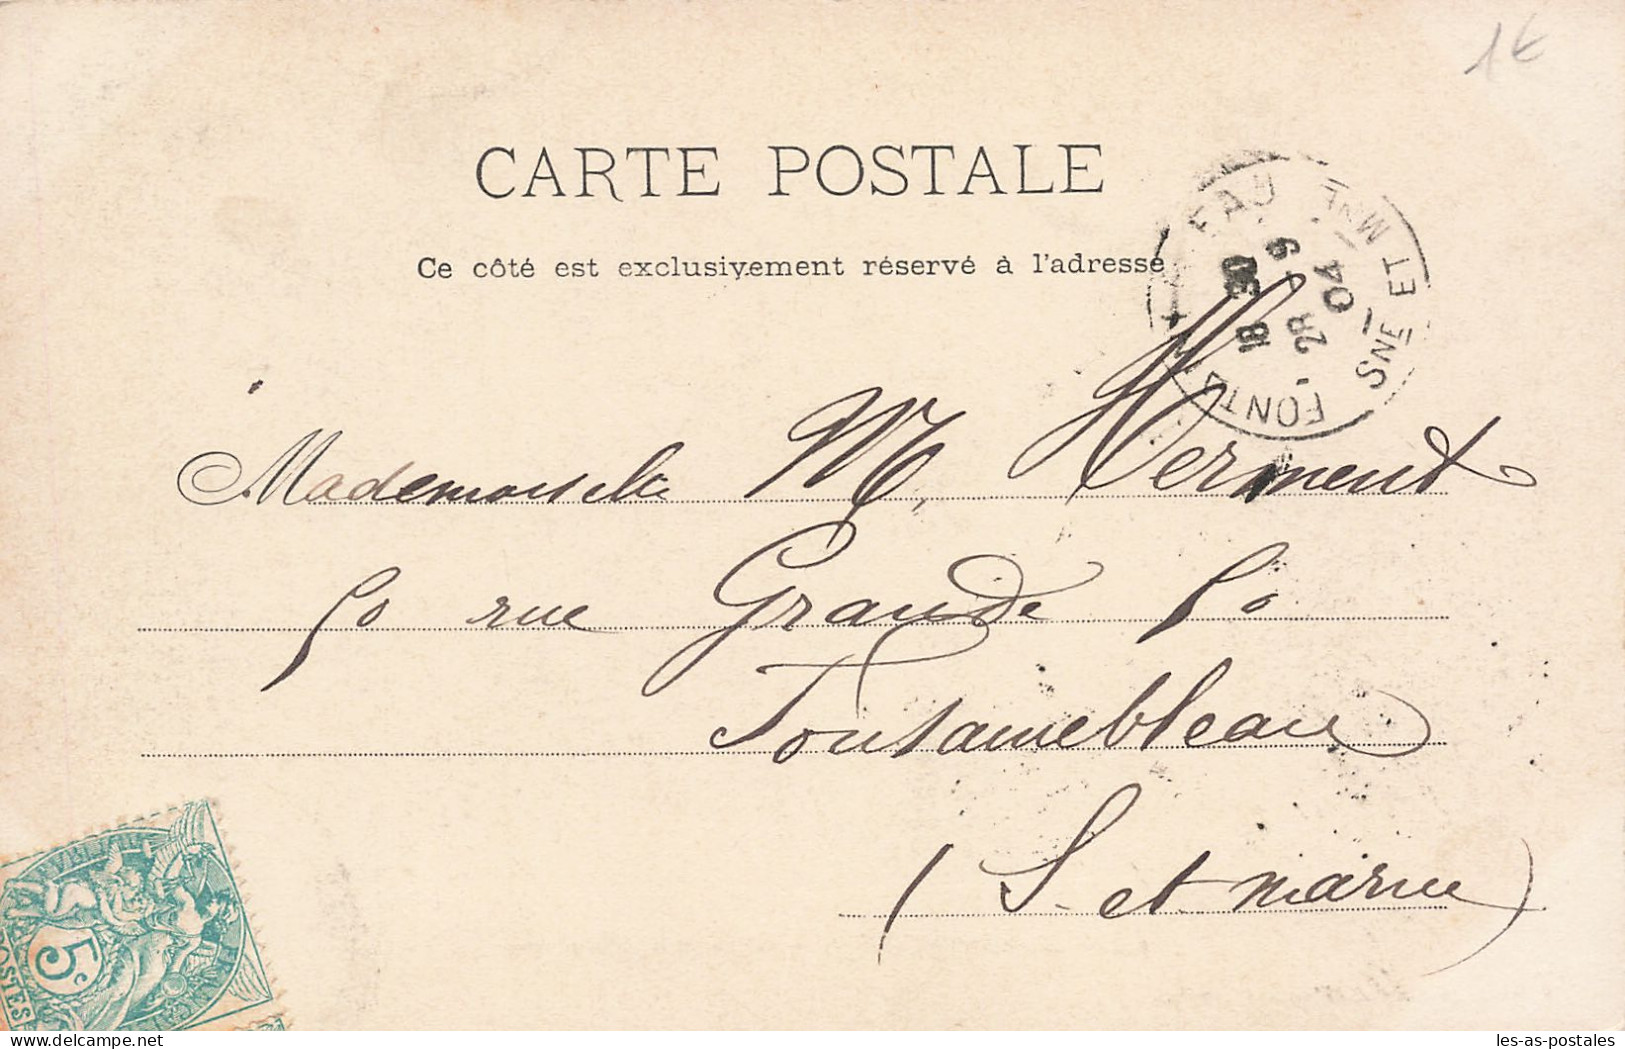 1€
CARTE POSTALE
Ce côté est exclusivement réservé à l'adresse
FONTAINEBLEAU SNE ET MNE
18 30
28 - 9
04
Mademoiselle M. Herment
50 rue Grande 50
Fontainebleau
(S. et marne)
5c
POSTES
les-as-postales